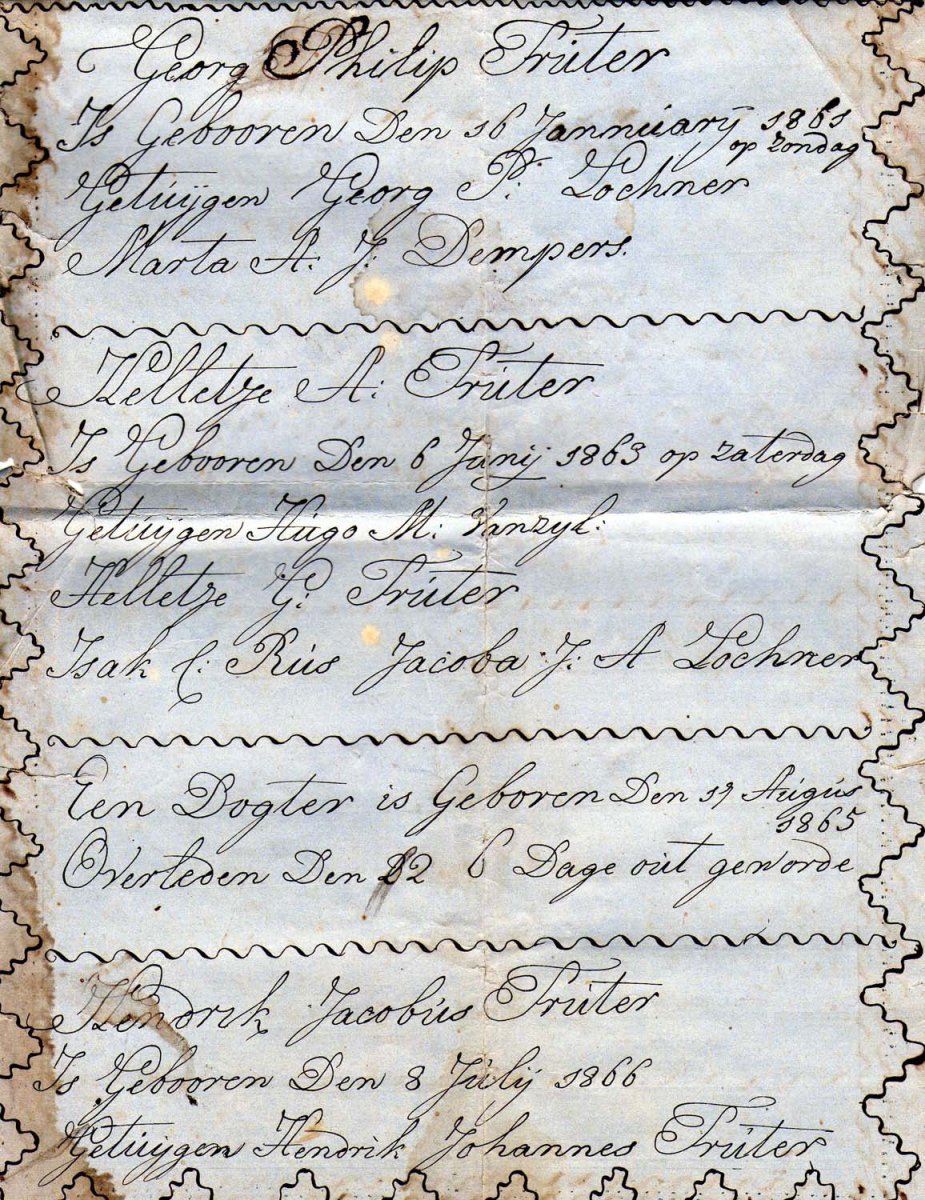 Georg Philip Trúter
Is Gebooren Den 16 Jannúarÿ 1861
op zondag
Getúÿgen Georg P: Lochner
Marta A: J: Dempers.
Helletze A: Trúter
Is Gebooren Den 6 Junÿ 1863 op zaterdag
Getúÿgen Húgo M: Vanzyl:
Helletze G: Trúter
Isak C: Rús Jacoba J: A Lochner
Een Dogter is Geboren Den 17 Aúgús
1865
Overleden Den 22 6 Dage oút geworde
Hendrik Jacobús Trúter
Is Gebooren Den 8 Júlÿ 1866
Getúÿgen Hendrik Johannes Trúter